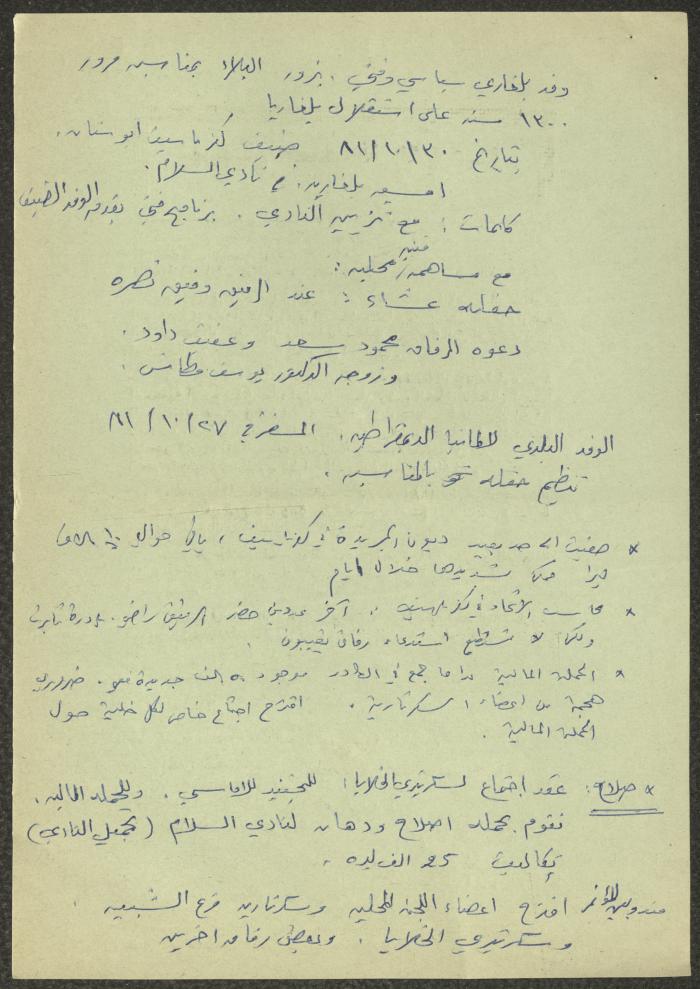 وفد بلغاري سياسي وفني. يزور البلاد بمناسبة مرور
١٣٠٠ سنة على استقلال بلغاريا
بتاريخ ٨١/١٠/٣٠ ضيف كفرياسيف ابوسنان.
امسيه بلغاريه. في نادي السلام.
كلمات: مع تزيين النادي. برنامج فني يقدم الوفد الضيف
مع مساهمه فنيه محليه:
حفله عشاء: عند الرفيق وفيق نصره
دعوه الرفاق محمود سعد وعفيف داود.
وزوجه الدكتور يوسف
الوفد البلدي لالمانيا الديمقراطيه. ٨١/١٠/٢٧
تنظيم حفله بالمناسبه.
* صفيت الى حد بعيد ديون الجريدة في كفرياسيف، باقي حوالي
ليرا ممكن تسديدها خلال ايام
* محاسب الاتحاد في كفرياسيف: آخر عددين حضر الرفيق راضي.
ولكن لا تستطيع استدعاء رفاق يغيبون.
* الحملة المالية ما جمع في الكادر موجود ٥٠ الف جديدة فهو. ضروري
من اعضاء السكرتارية. اقترح اجتماع خاص لكل خلية حول
الحملة المالية.
* صلاح: عقد اجتماع لسكرتيري الخلايا: للتجنيد للاماسي. وللحمله الماليه.
نقوم بحمله اصلاح ودهان لنادي السلام (تجميل النادي)
تكاليف 25 الف ليره.
مندوبين للمؤتمر اقترح اعضاء اللجنه المحليه وسكرتاريه فرع الشبيبه.
وسكرتيري الخلايا. وبعض رفاق اخرين